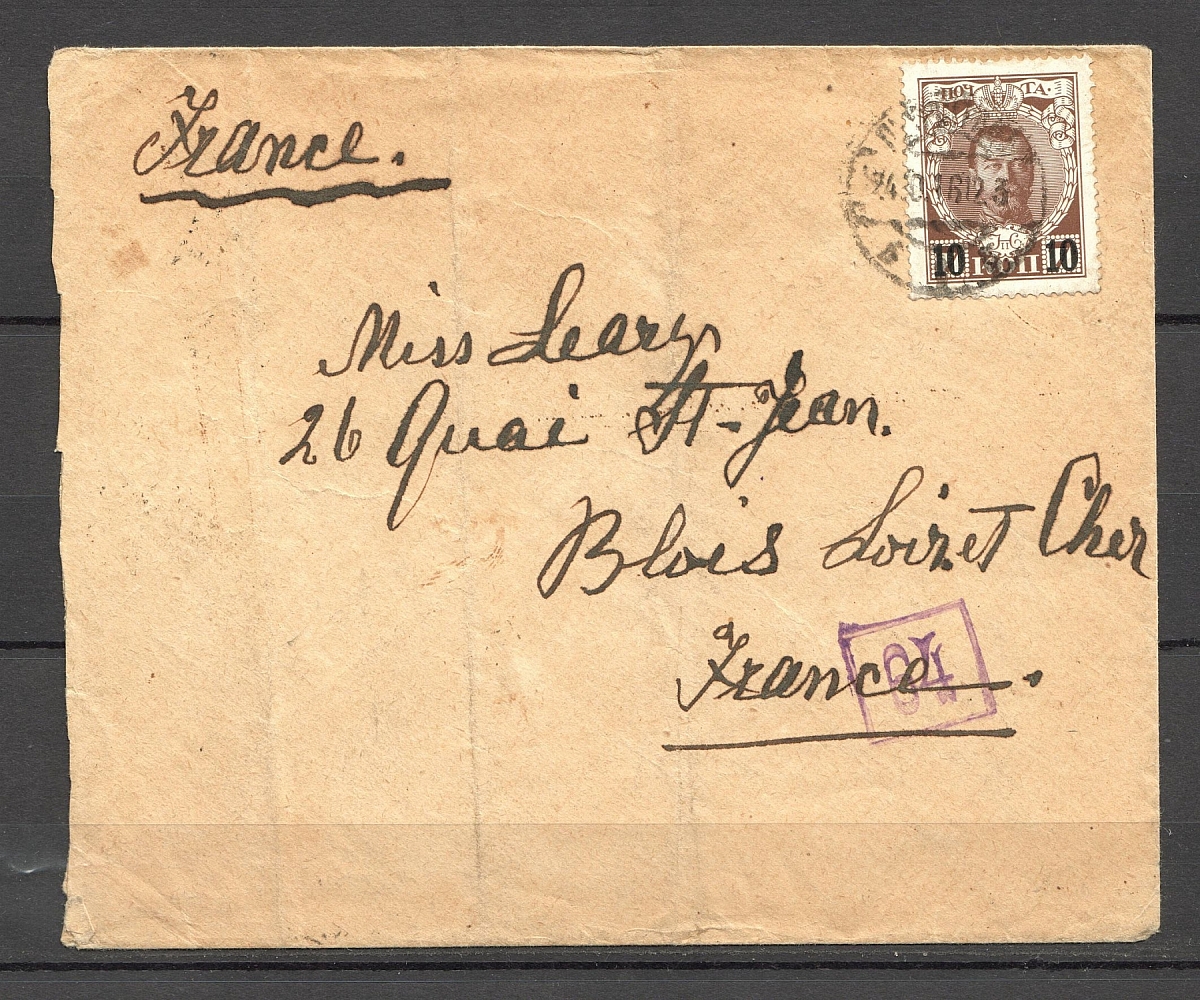 France.
ПОЧТА
10 10
Miss Leary
26 Quai St-Jean.
Blois Loiret Cher
France.
64